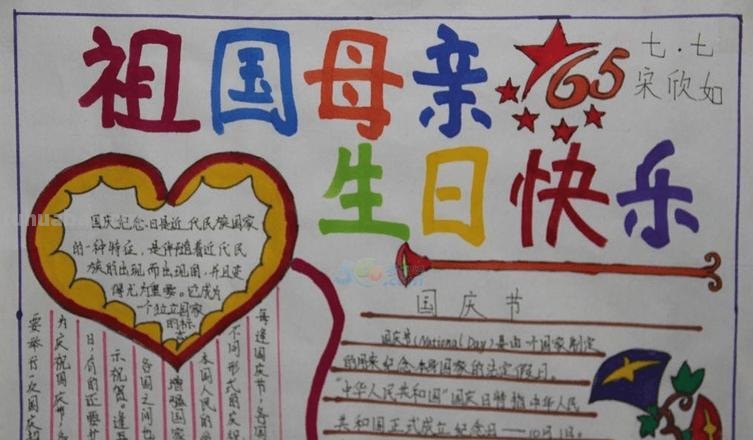 祖国母亲
65
七·七
宋欣如
生日快乐
国庆纪念日是近代民族国家
的一种特征，是伴随着近代民
族的出现而出现的，并且变
得尤为重要。它成为
一个独立国家
的标
国庆节
国庆节(National Day)是由一个国家制定
的用来纪念本国国家的法定假日。
"中华人民共和国"国庆日特指中华人民
共和国正式成立纪念日——10月1日。
每逢国庆节，各国
不同形式的庆祝
本国人民的
增强国家
各国之间也
示祝贺。逢五
日，有的还要
为庆祝国庆节，各
要举行一次国庆招